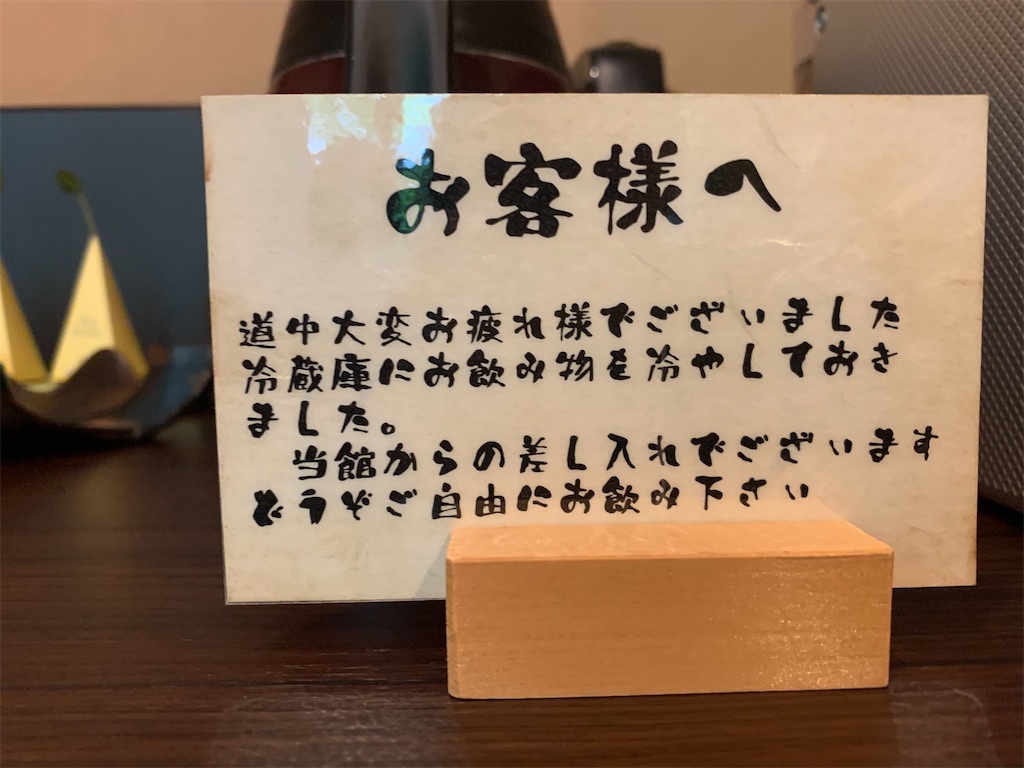 お客様へ
道中大変お疲れ様でございました
冷蔵庫にお飲み物を冷やしておき
ました。
当館からの差し入れでございます
どうぞご自由にお飲み下さい